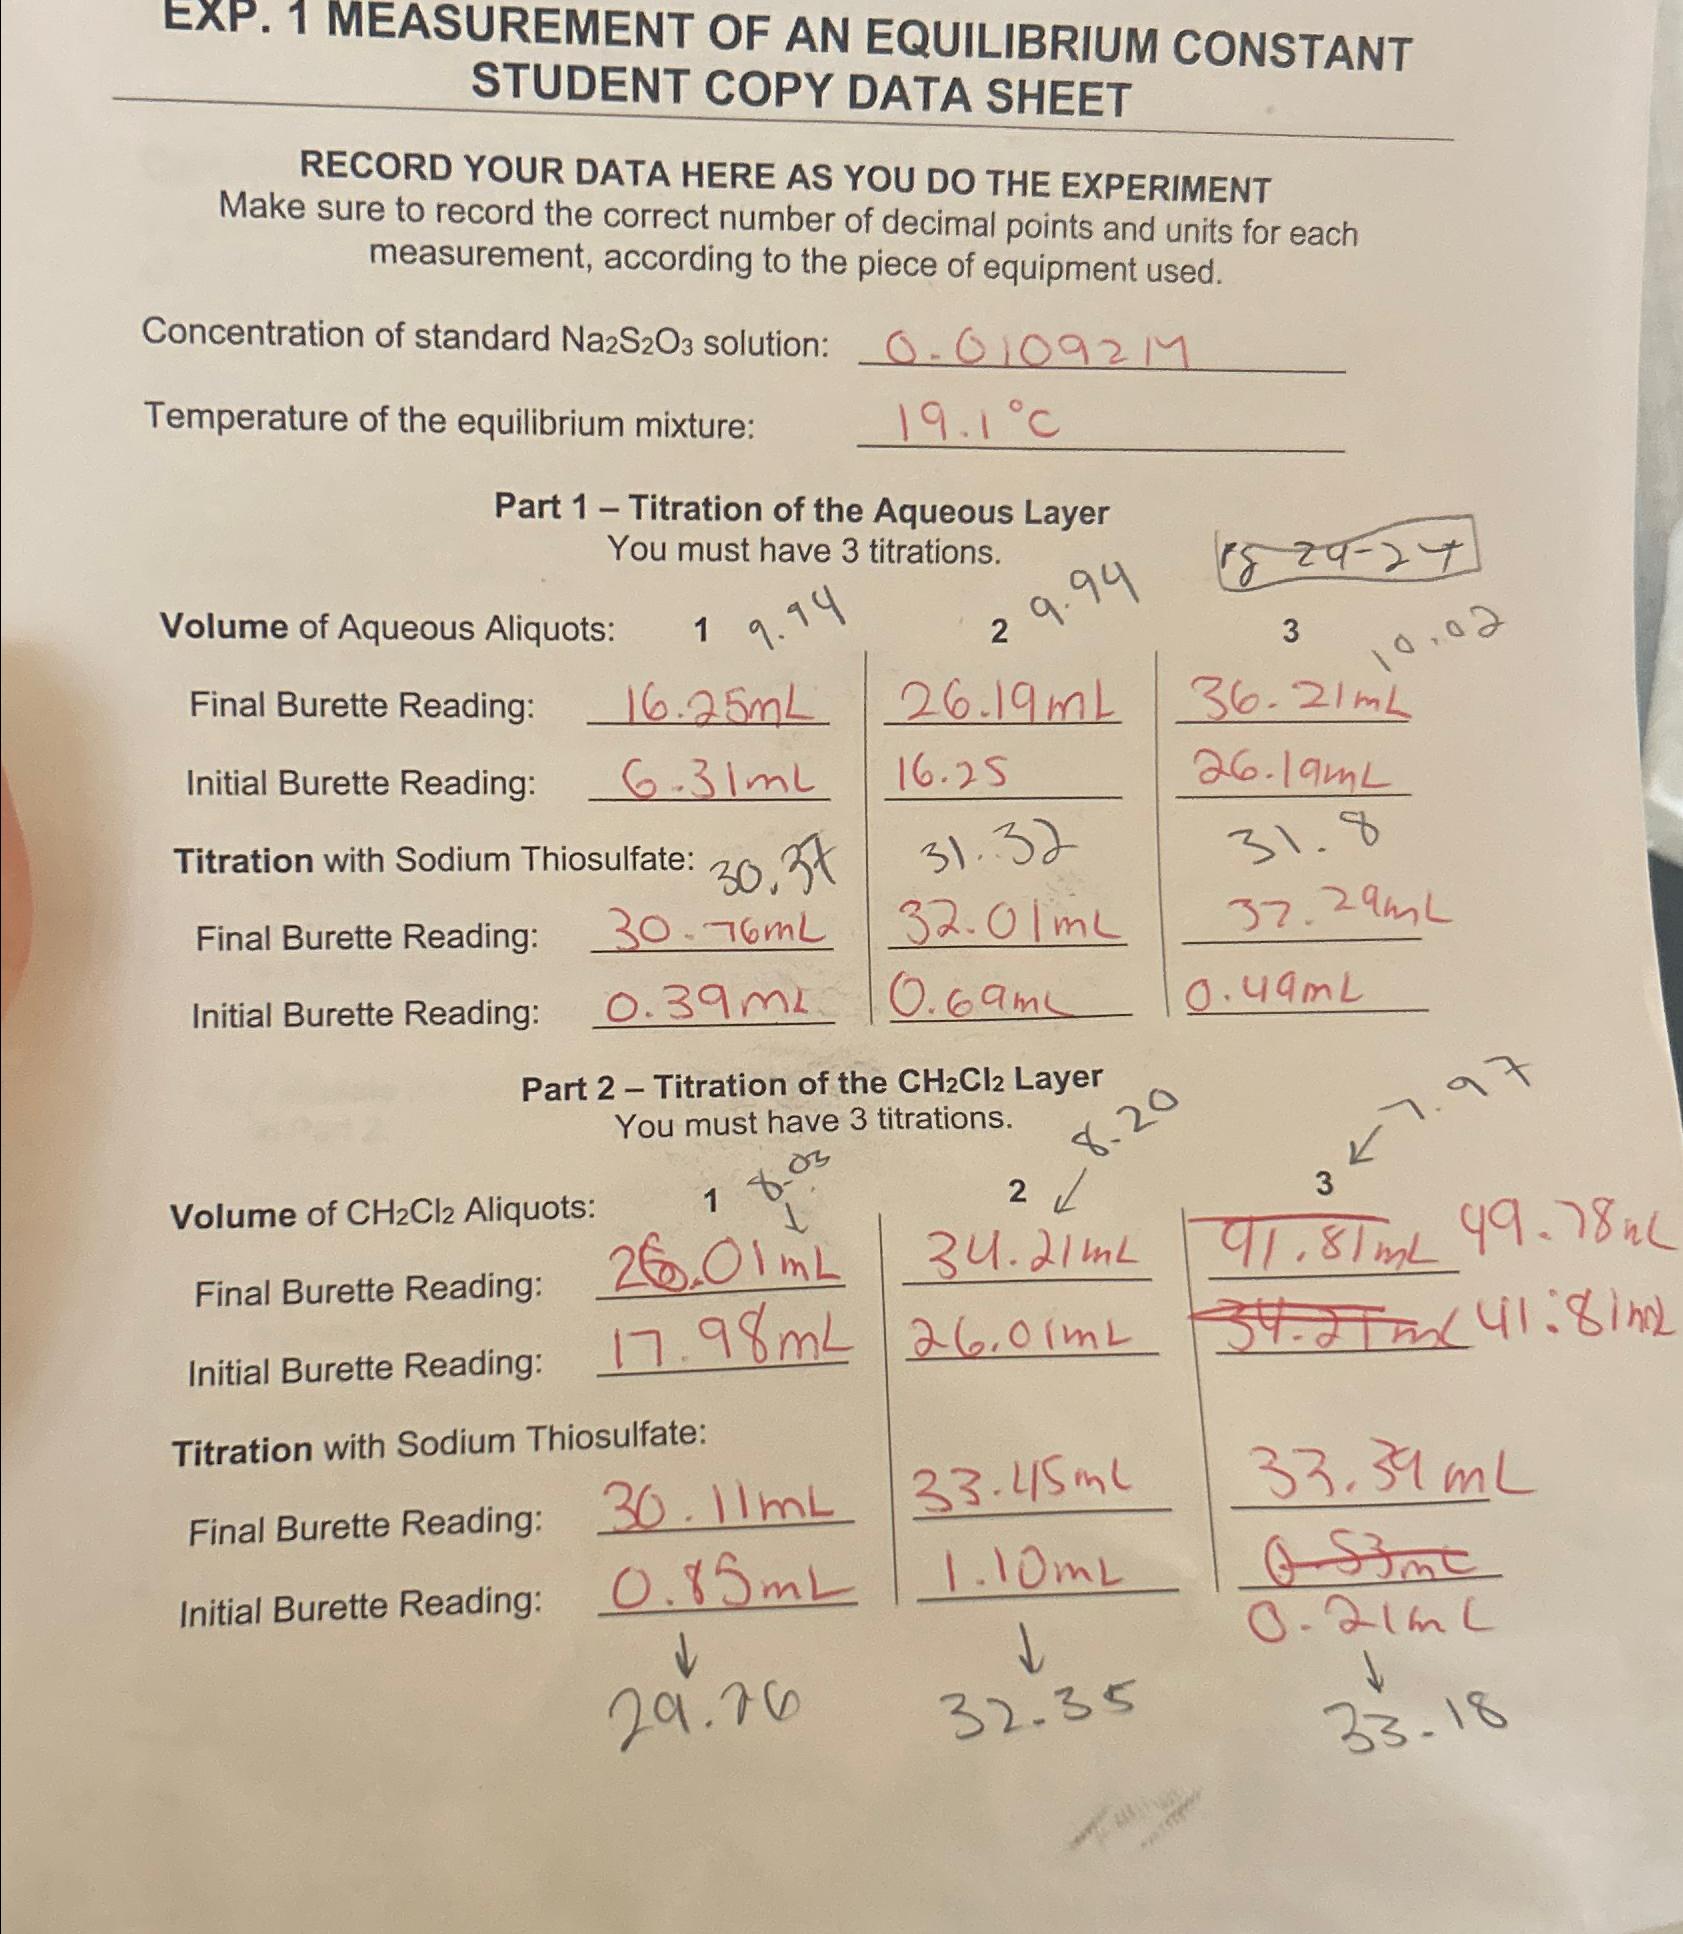 EXP. 1 MEASUREMENT OF AN EQUILIBRIUM CONSTANT
STUDENT COPY DATA SHEET
RECORD YOUR DATA HERE AS YOU DO THE EXPERIMENT
Make sure to record the correct number of decimal points and units for each
measurement, according to the piece of equipment used.
Concentration of standard Na2S2O3 solution: 0.01092M
Temperature of the equilibrium mixture: 19.1°C
Part 1 – Titration of the Aqueous Layer
You must have 3 titrations.
Pg 24-27
Volume of Aqueous Aliquots: 1 9.94 2 9.94 3 10.02
Final Burette Reading: 16.25mL 26.19mL 36.21mL
Initial Burette Reading: 6.31mL 16.25 26.19mL
Titration with Sodium Thiosulfate: 30.37 31.32 31.8
Final Burette Reading: 30.76mL 32.01mL 32.29mL
Initial Burette Reading: 0.39mL 0.69mL 0.49mL
Part 2 – Titration of the CH2Cl2 Layer
You must have 3 titrations.
Volume of CH2Cl2 Aliquots: 1 8.03 2 8.20 3 7.97
Final Burette Reading: 26.01mL 34.21mL 41.81mL 49.78mL
Initial Burette Reading: 17.98mL 26.01mL 34.21mL 41.81mL
Titration with Sodium Thiosulfate:
Final Burette Reading: 30.11mL 33.45mL 33.39mL
Initial Burette Reading: 0.85mL 1.10mL 0.53mL
0.21mL
29.26 32.35 33.18